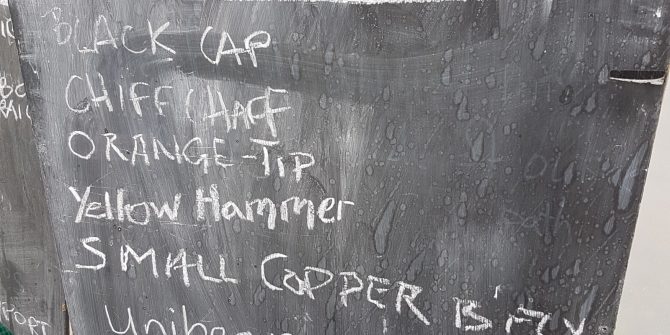 BLACK CAP
CHIFFCHAFF
ORANGE-TIP
Yellow Hammer
SMALL COPPER B'FLY